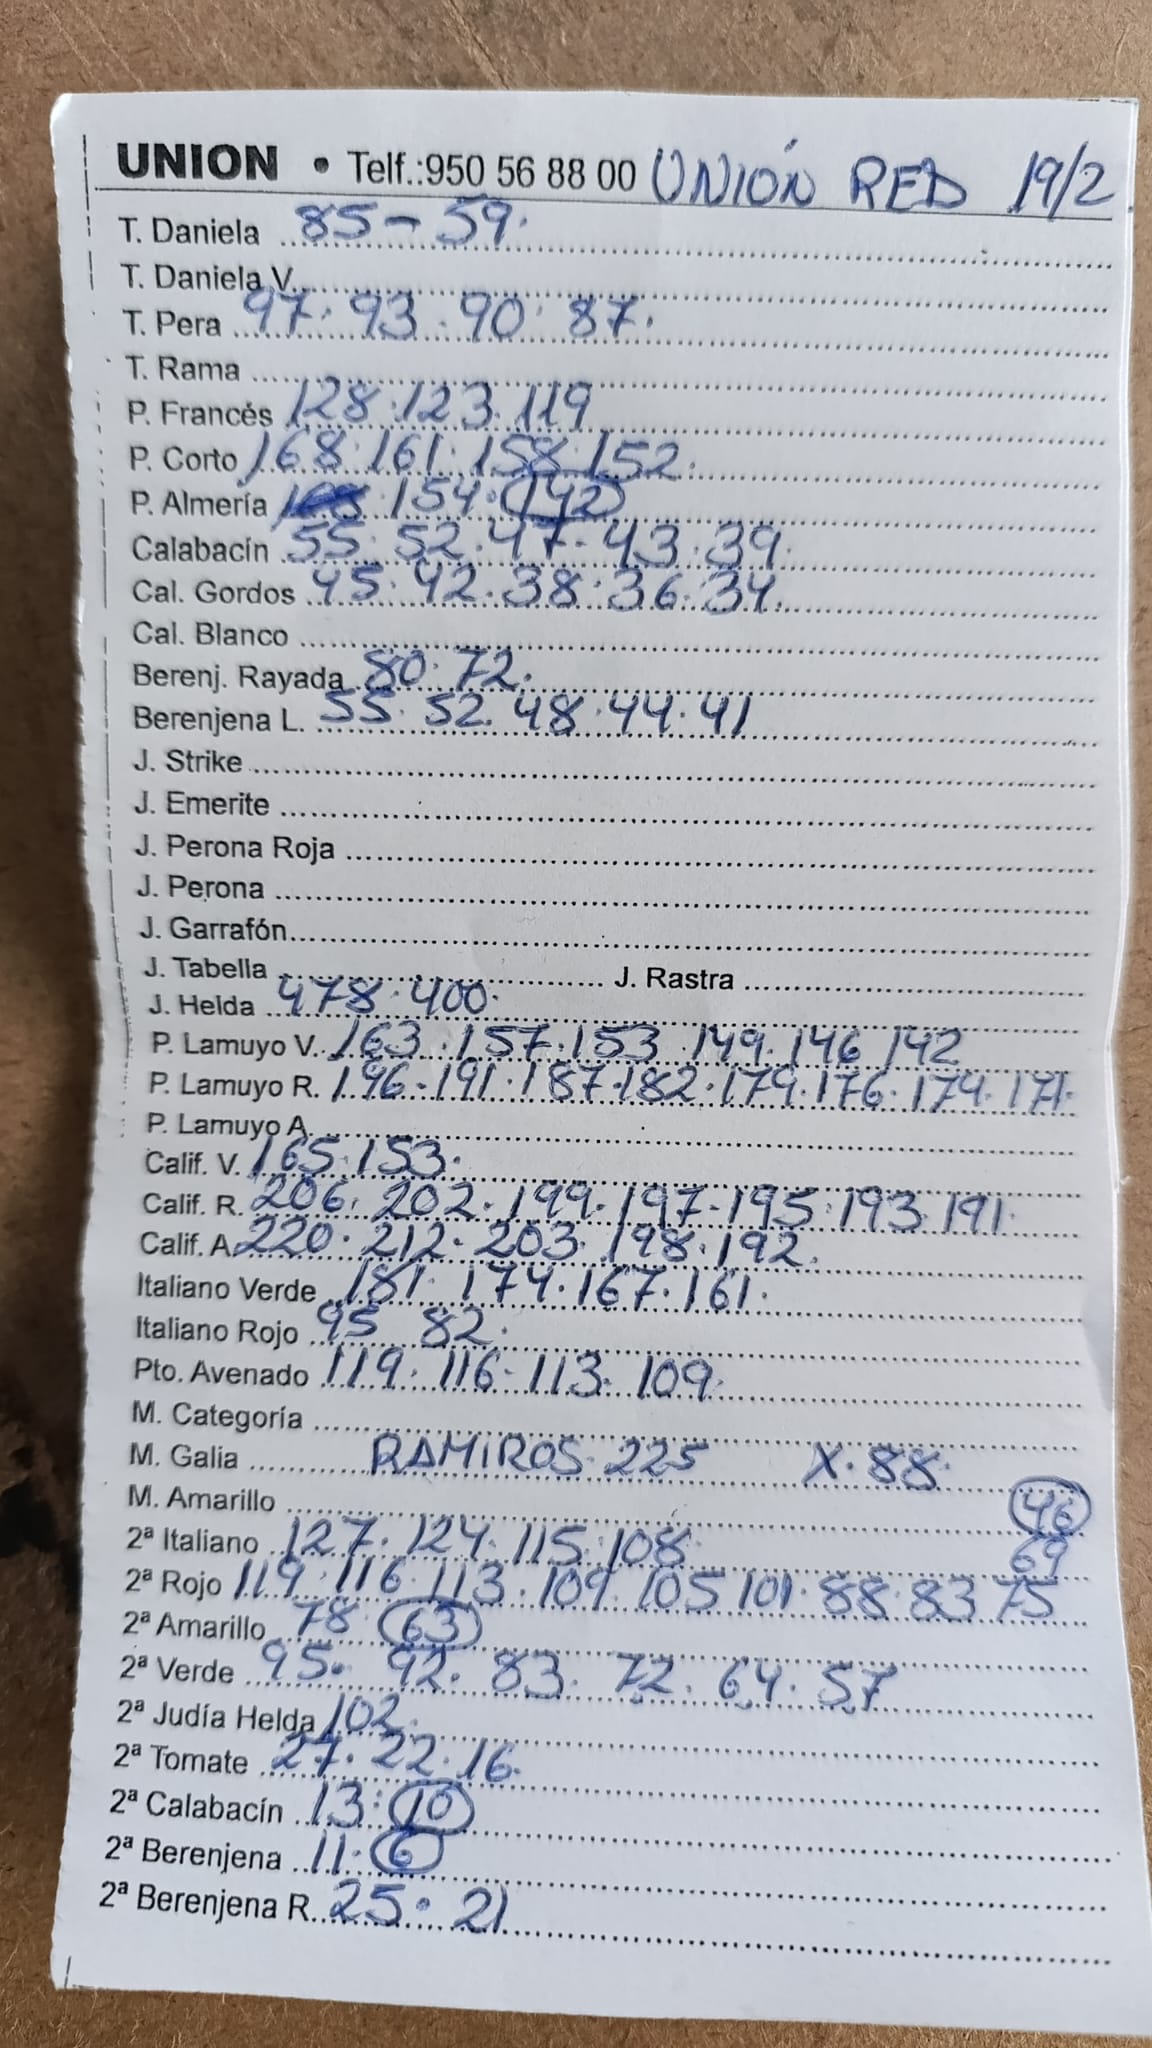 UNION • Telf.:950 56 88 00 UNIÓN RED 19/2
T. Daniela 85 - 59.
T. Daniela V.
T. Pera 97. 93. 90. 87.
T. Rama
P. Francés 128. 123. 119
P. Corto 168. 161. 158. 152.
P. Almería 154. 142
Calabacín 55. 52. 47. 43. 39.
Cal. Gordos 45. 42. 38. 36. 34.
Cal. Blanco
Berenj. Rayada 80. 72.
Berenjena L. 55. 52. 48. 44. 41
J. Strike
J. Emerite
J. Perona Roja
J. Perona
J. Garrafón
J. Tabella J. Rastra
J. Helda 478. 400.
P. Lamuyo V. 163. 157. 153 149. 146 142
P. Lamuyo R. 196. 191. 187. 182. 179. 176. 174. 171.
P. Lamuyo A.
Calif. V. 165. 153.
Calif. R. 206. 202. 199. 197. 195. 193. 191.
Calif. A. 220. 212. 203. 198. 192.
Italiano Verde 181. 174. 167. 161.
Italiano Rojo 95 82.
Pto. Avenado 119. 116. 113. 109.
M. Categoría
M. Galia RAMIROS. 225 X. 88.
M. Amarillo 46
2ª Italiano 127. 124. 115. 108. 69
2ª Rojo 119. 116. 113. 109. 105 101. 88. 83 75
2ª Amarillo 78. 63
2ª Verde 95. 92. 83. 72. 64. 57
2ª Judía Helda 102.
2ª Tomate 27. 22. 16.
2ª Calabacín 13. 10
2ª Berenjena 11. 6
2ª Berenjena R. 25. 21